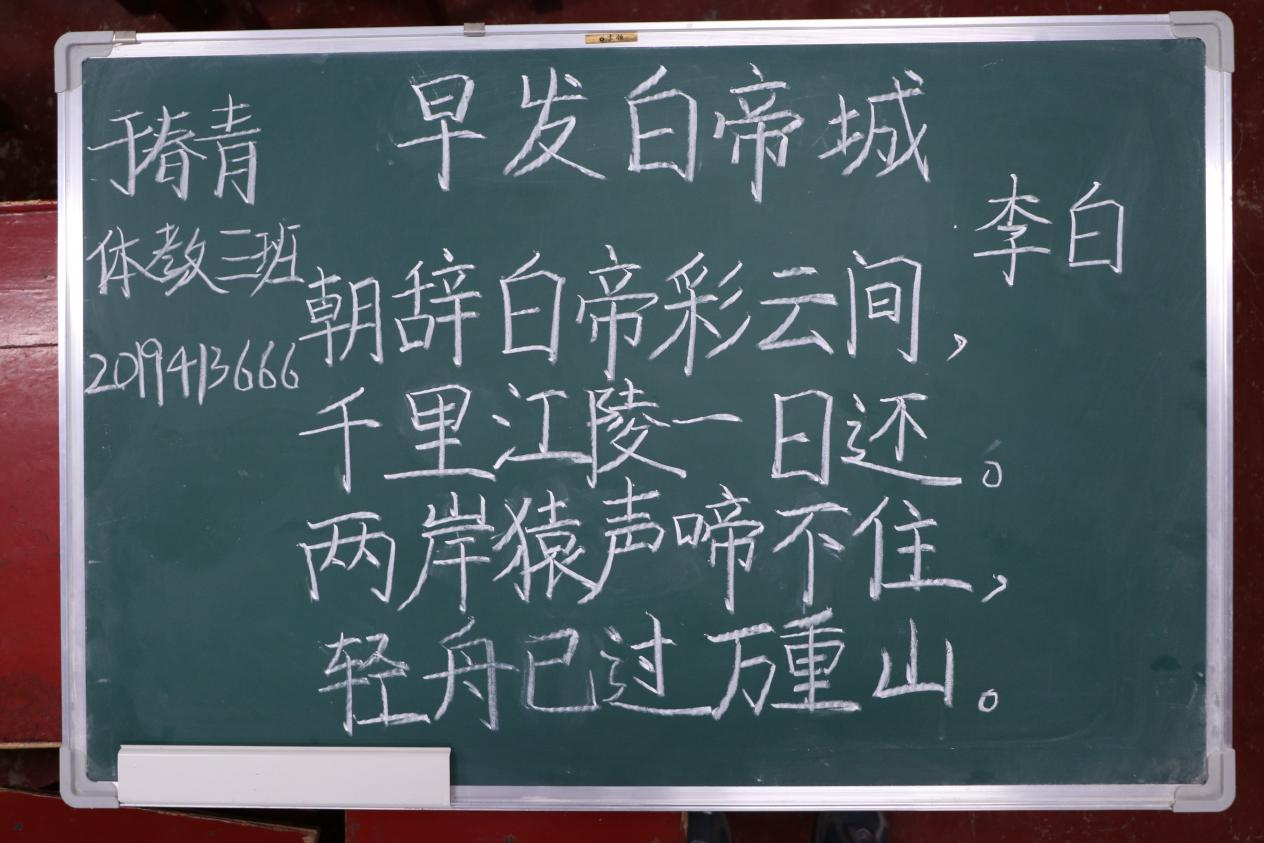 早发白帝城
李白
于春青
体教三班
2019413666
朝辞白帝彩云间，
千里江陵一日还。
两岸猿声啼不住，
轻舟已过万重山。